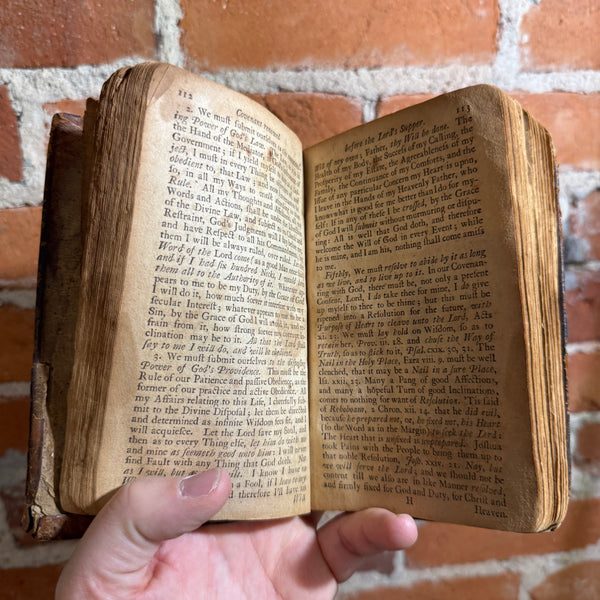 112
Covenant renewed,
2. We muſt ſubmit ourſelves to the command-
ing Power of God's Law.
the Hand of the Mediator
Government; if I yield myſelf
ject, I muſt in every Thing
obedient to, that Law; and now
ſo, in all my Ways to walk
Rule. All my Thoughts and
Words and Actions, ſhall be under the
of the Divine Law, and ſubject to
Reſtraint, God's Judgments
and have Reſpect to all his Commands
them I will be always ruled, over ruled.
Word of the Lord come as a good man
and if I had ſix hundred Necks, I would
them all to the Authority of it. Whatever
pears to me to be my Duty, by the Grace
I will do it, how much ſoever it interfere with
ſecular Intereſt; whatever appears to me
Sin, by the Grace of God I will avoid it, and re-
frain from it, how ſtrong ſoever my
clination may be to it. As that the Lord ſhall
ſay to me I will do, and will be obedient.
3. We muſt ſubmit ourſelves to the diſpoſing
Power of God's Providence. This muſt be the
Rule of our Patience and paſſive Obedience, as the
former of our practice and active Obedience. All
my Affairs relating to this Life, I chearfully ſub-
mit to the Divine Diſpoſal; let them be directed
and determined as infinite Wiſdom ſees fit, and I
will acquieſce. Let the Lord ſave my Soul, and
then as to every Thing elſe, let him do with me
and mine as ſeemeth good unto him. I will never
find Fault with any Thing that God doth. Not
as I will, but as thou wilt. I know I have no
Wiſdom of my own, I am a Fool, if
and therefore I'll have no
Will
before the Lord's Supper.
113
Will of my own; Father, thy Will be done. The
Health of my Body, the Succeſs of my Calling, the
Proſperity of my Eſtate, the Agreeableneſs of my
Family, the Continuance of my Comforts, and the
Iſſue of any particular Concern my Heart is upon,
I leave in the Hands of my Heavenly Father, who
knows what is good for me better than I do for my-
ſelf: If in any of theſe I be croſſed, by the Grace
of God I will ſubmit without murmuring or diſpu-
ting: All is well that God doth, and therefore
welcome the Will of God in every Event; while
he is mine, and I am his, nothing ſhall come amiſs
to me.
Fifthly, We muſt reſolve to abide by it as long
as we live, and to live up to it. In our Covenant-
ing with God, there muſt be, not only a preſent
Conſent, Lord, I do take thee for mine, I do give
up myſelf to thee to be thine; but this muſt be
ripened into a Reſolution for the future, with
Purpoſe of Heart to cleave unto the Lord. Acts
xi. 23. We muſt lay hold on Wiſdom, ſo as to
retain her, Prov. iii. 18. and chuſe the Way of
Truth, ſo as to ſtick to it, Pſal. cxix. 30, 31. The
Nail in the Holy Place, Ezra viii. 9. muſt be well
clenched, that it may be a Nail in a ſure Place,
Iſa. xxii, 23. Many a Pang of good Affections,
and many a hopeful Turn of good Inclinations,
comes to nothing for want of Reſolution. 'Tis ſaid
of Rehoboam, 2 Chron. xii. 14. that he did evil,
becauſe he prepared not, or, he fixed not, his Heart
(ſo the Word is in the Margin) to ſeek the Lord:
The Heart that is unfixed is unprepared. Joſhua
took Pains with the People to bring them up to
that noble Reſolution, Joſh. xxiv. 21. Nay, but
we will ſerve the Lord; and we ſhould not be
content till we alſo are in like Manner reſolved,
and firmly fixed for God and Duty, for Chriſt and
H
Heaven.